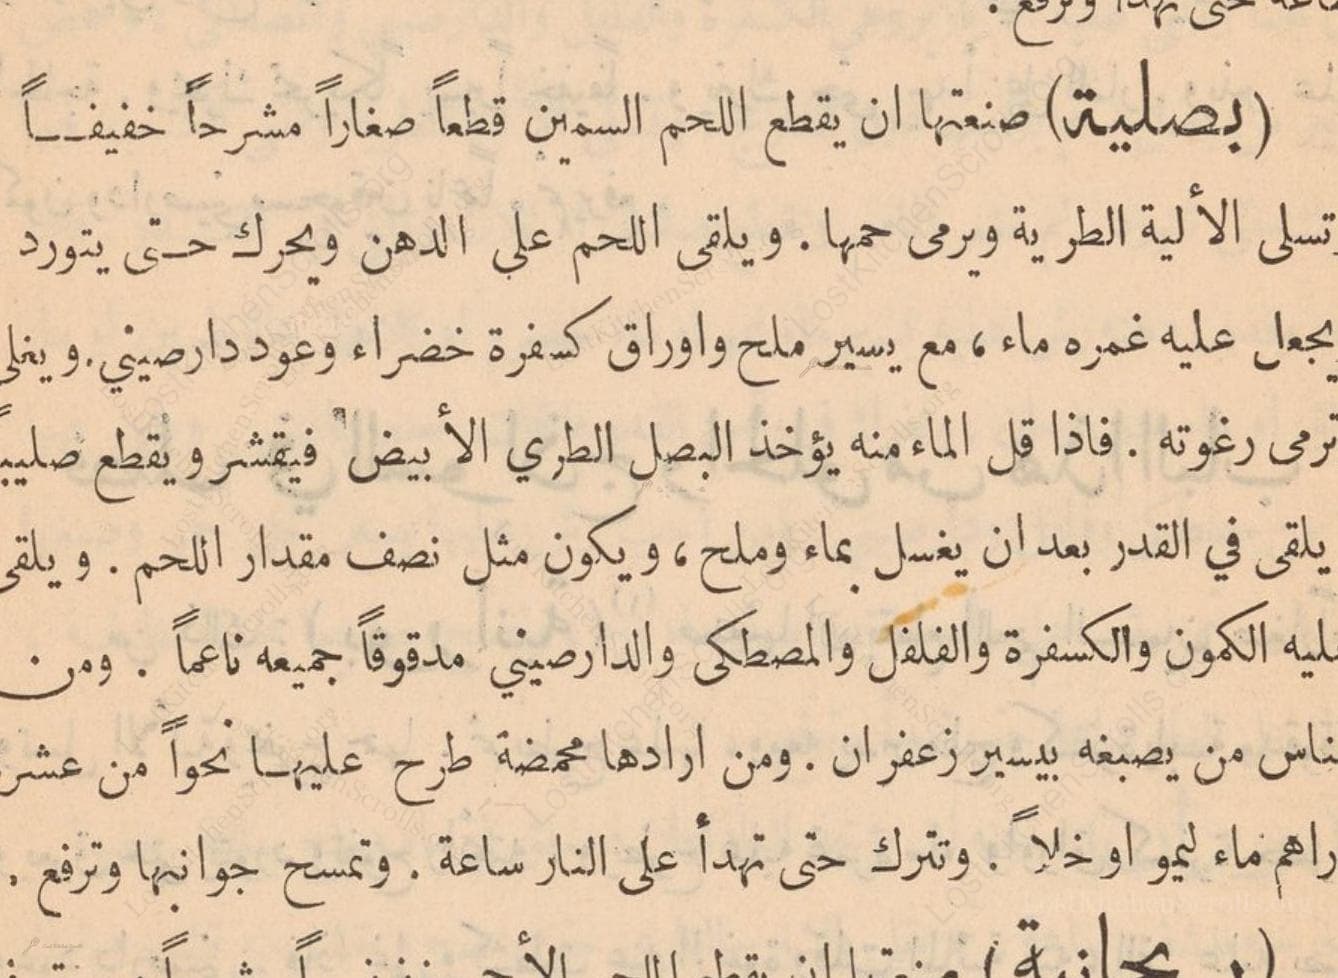 حتى تهدأ وترفع .
(بصلية) صنعتها ان يقطع اللحم السمين قطعاً صغاراً مشرحاً خفيفــاً
وتسلى الألية الطرية ويرمى حمها . ويلقى اللحم على الدهن ويحرك حــتى يتورد
يجعل عليه غمره ماء ، مع يسير ملح واوراق كسفرة خضراء وعود دارصيني . ويغلى
ترمى رغوته . فاذا قل الماء منه يؤخذ البصل الطري الأبيض فيقشر ويقطع صليبـ
يلقى في القدر بعد ان يغسل بماء وملح ، ويكون مثل نصف مقدار اللحم . ويلقى
عليه الكمون والكسفرة والفلفل والمصطكى والدارصيني مدقوقاً جميعه ناعماً . ومن
لناس من يصبغه بيسير زعفران . ومن ارادها محمضة طرح عليهــا نحواً من عشر
راهم ماء ليمو او خلاً . وتترك حتى تهدأ على النار ساعة . وتمسح جوانبها وترفع .
LostKitchenScrolls.org